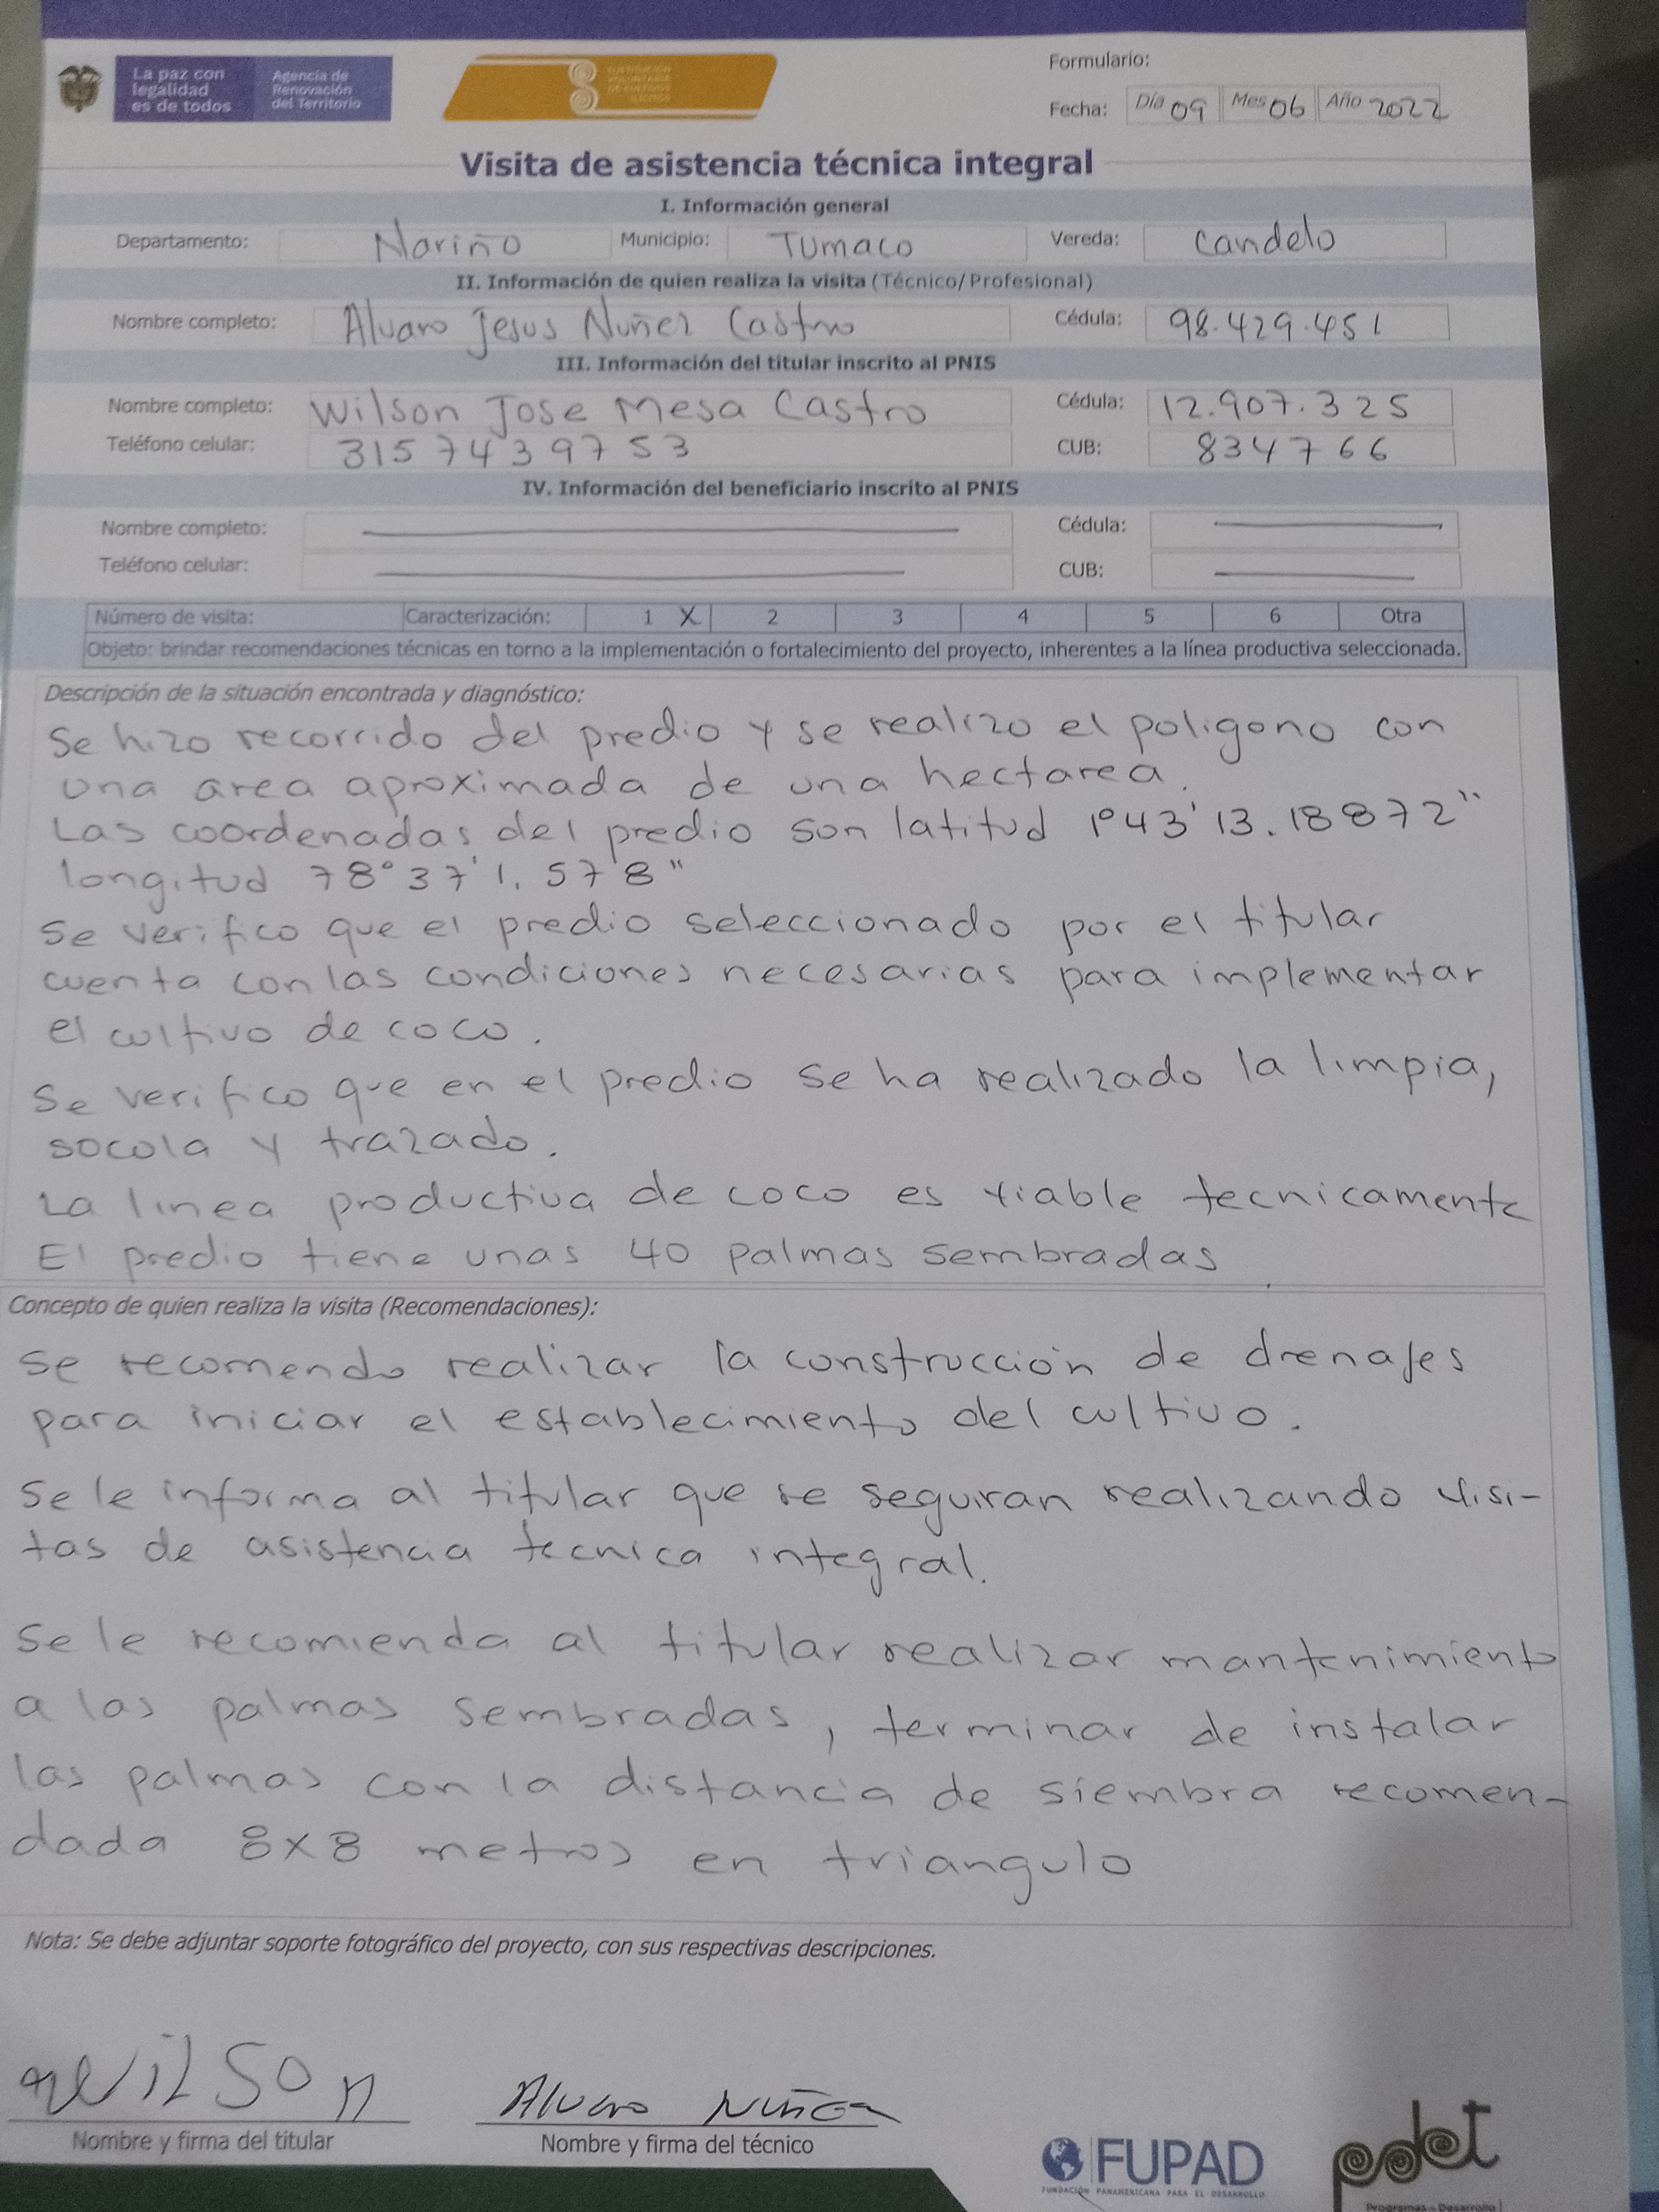 La paz con legalidad es de todos
Agencia de Renovación del Territorio
SUSTITUCIÓN VOLUNTARIA DE CULTIVOS ILÍCITOS
Formulario:
Fecha: Día 09 Mes 06 Año 2022
Visita de asistencia técnica integral
I. Información general
Departamento: Nariño Municipio: Tumaco Vereda: Candelo
II. Información de quien realiza la visita (Técnico/Profesional)
Nombre completo: Alvaro Jesus Nuñez Castro Cédula: 98.429.451
III. Información del titular inscrito al PNIS
Nombre completo: Wilson Jose Mesa Castro Cédula: 12.907.325
Teléfono celular: 3157439753 CUB: 834766
IV. Información del beneficiario inscrito al PNIS
Nombre completo: Cédula:
Teléfono celular: CUB:
Número de visita: Caracterización: 1 X 2 3 4 5 6 Otra
Objeto: brindar recomendaciones técnicas en torno a la implementación o fortalecimiento del proyecto, inherentes a la línea productiva seleccionada.
Descripción de la situación encontrada y diagnóstico:
Se hizo recorrido del predio y se realizo el poligono con
una area aproximada de una hectarea.
Las coordenadas del predio son latitud 1°43'13.18872"
longitud 78°37'1.578"
Se verifico que el predio seleccionado por el titular
cuenta con las condiciones necesarias para implementar
el cultivo de coco.
Se verifico que en el predio se ha realizado la limpia,
socola y trazado.
La linea productiva de coco es viable tecnicamente
El predio tiene unas 40 palmas sembradas
Concepto de quien realiza la visita (Recomendaciones):
Se recomendo realizar la construcción de drenajes
para iniciar el establecimiento del cultivo.
Se le informa al titular que se seguiran realizando visi-
tas de asistencia tecnica integral.
Se le recomienda al titular realizar mantenimiento
a las palmas sembradas, terminar de instalar
las palmas con la distancia de siembra recomen-
dada 8x8 metros en triangulo
Nota: Se debe adjuntar soporte fotográfico del proyecto, con sus respectivas descripciones.
Wilson Alvaro Nuñez
Nombre y firma del titular Nombre y firma del técnico
FUPAD
FUNDACIÓN PANAMERICANA PARA EL DESARROLLO
pdet
Programas de Desarrollo